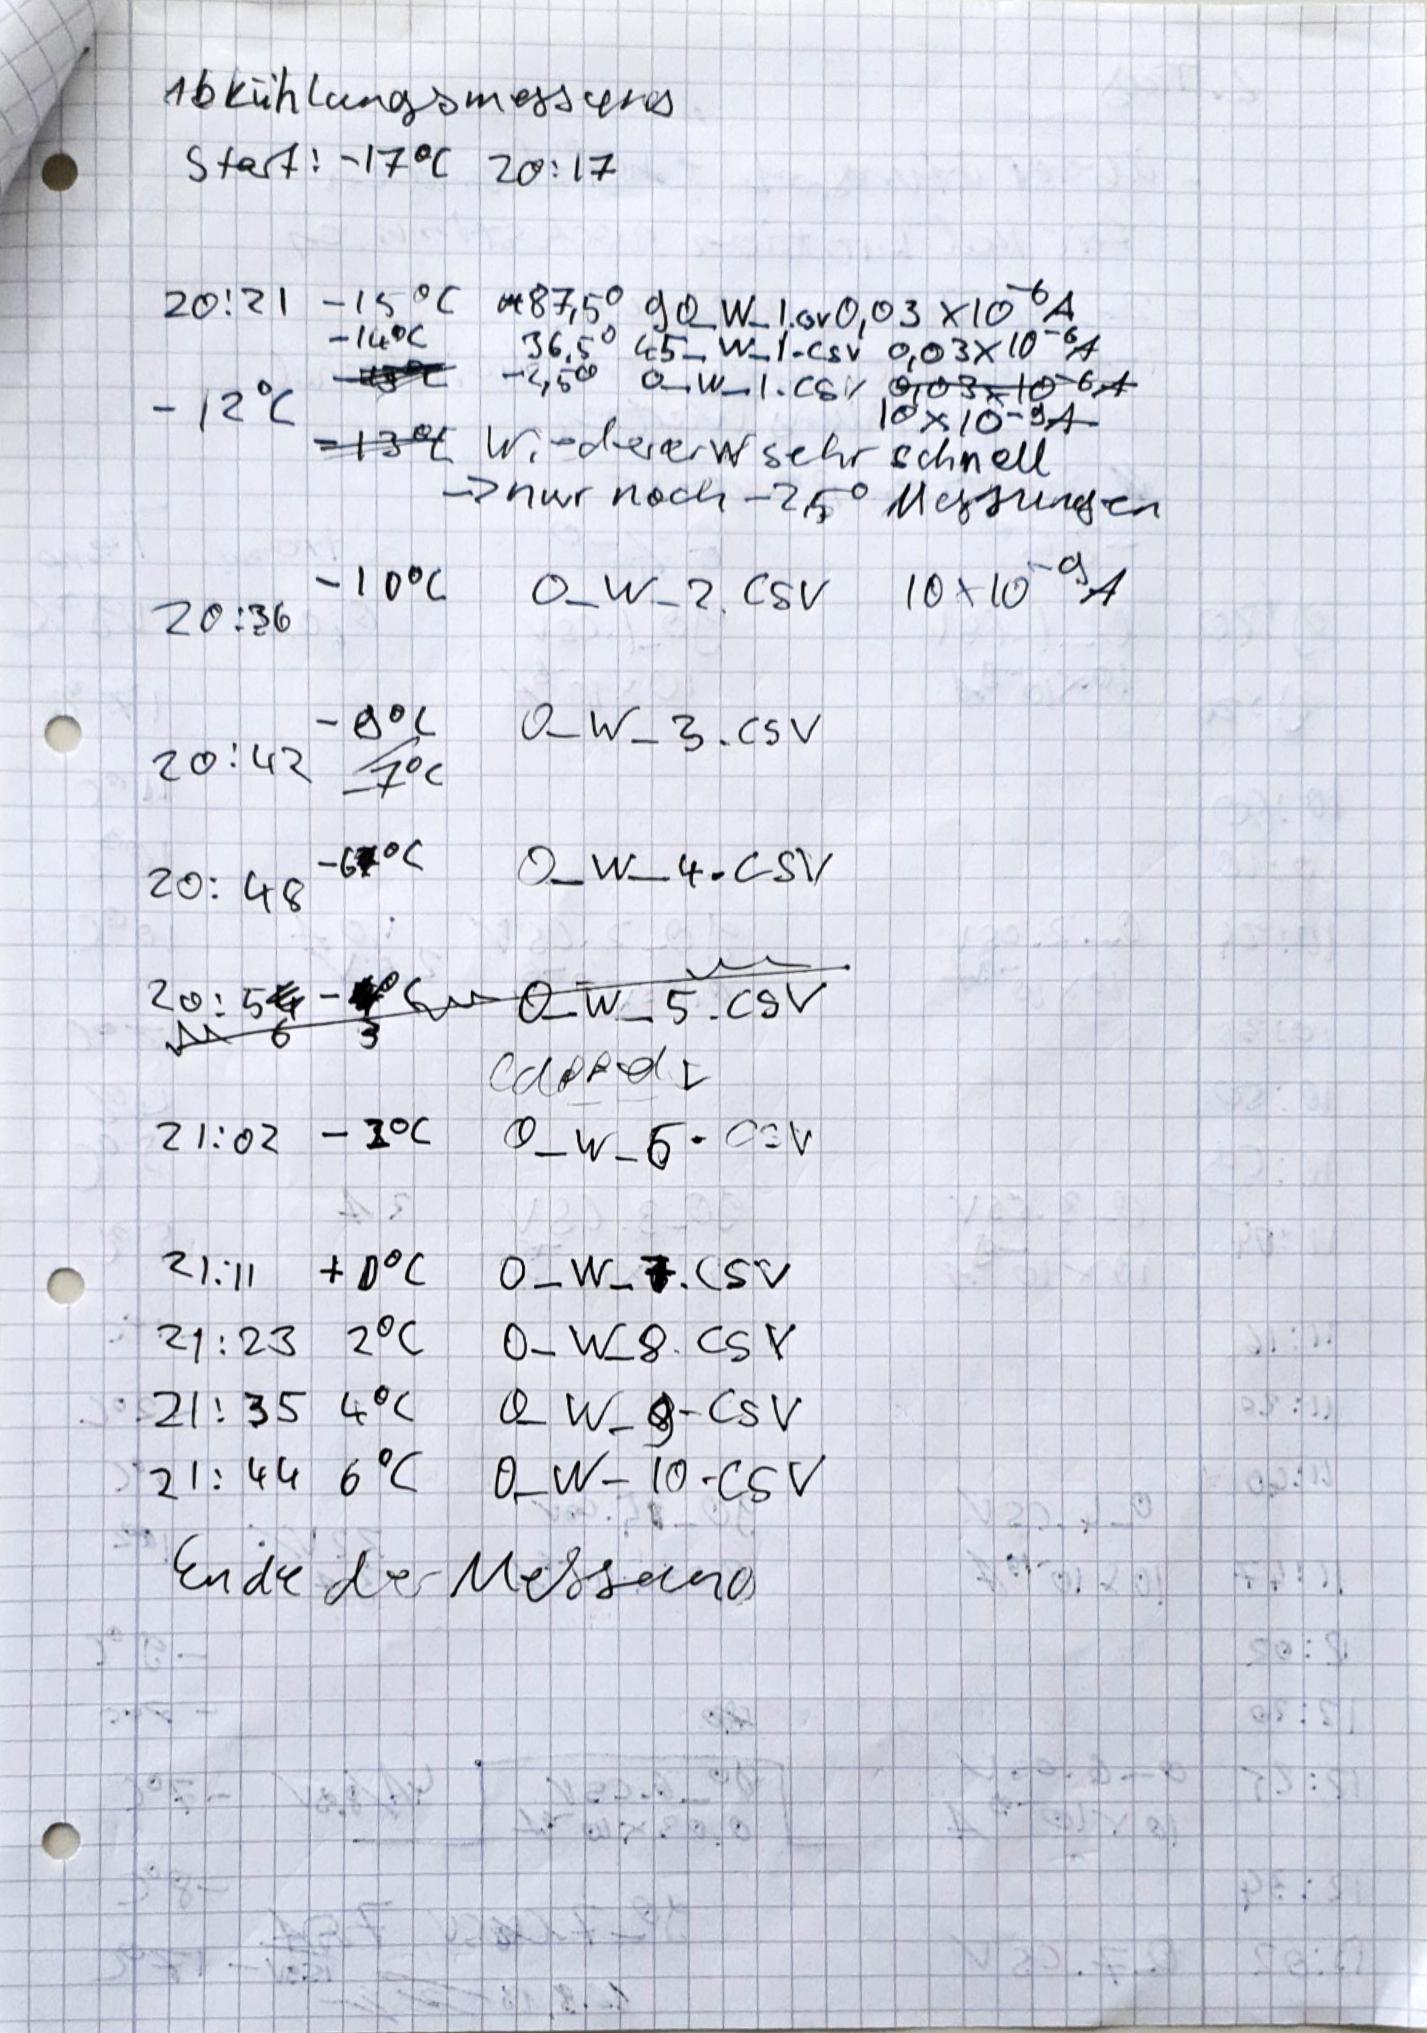 Abkühlungsmessung
Start: -17°C 20:17
20:21 -15°C 87,5° 90_W_1.csv 0,03 x10⁻⁶A
-14°C 36,5° 45_W_1.csv 0,03x10⁻⁶A
-2,5° 0_W_1.csv 0,03x10⁻⁶A
-12°C 10x10⁻⁹A
-13°C sehr schnell
→ nur noch -2,5° Messungen
-10°C 0_W_2.csv 10x10⁻⁹A
20:36
0_W_3.csv
20:42 -7°C
-6°C 0_W_4.csv
20:48
20:5 - °C 0_W_5.csv
6 3
21:02 - °C 0_W_6.csv
21:11 +0°C 0_W_7.csv
21:23 2°C 0_W_8.csv
21:35 4°C 0_W_9.csv
21:44 6°C 0_W_10.csv
Ende der Messung